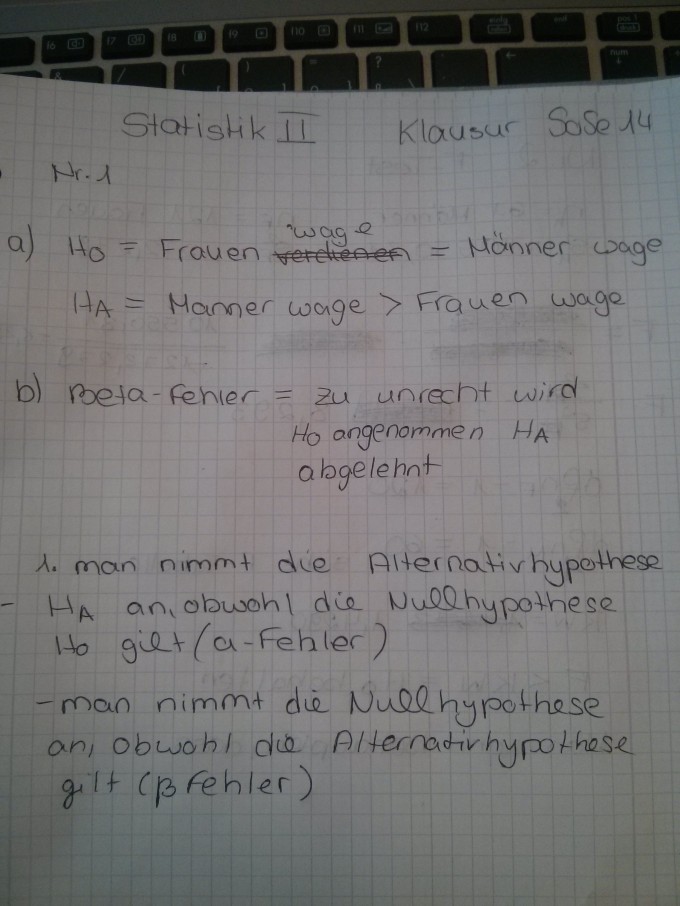 f6 f7 f8 f9 f10 f11 f12 einfg entf
& / ( ) = ? num
Statistik II Klausur SoSe 14
Nr. 1
wage
a) H0 = Frauen verdienen = Männer wage
HA = Manner wage > Frauen wage
b) Beta-Fehler = zu unrecht wird
H0 angenommen HA
abgelehnt
1. man nimmt die Alternativhypothese
- HA an, obwohl die Nullhypothese
H0 gilt (α-Fehler)
- man nimmt die Nullhypothese
an, obwohl die Alternativhypothese
gilt (β Fehler)